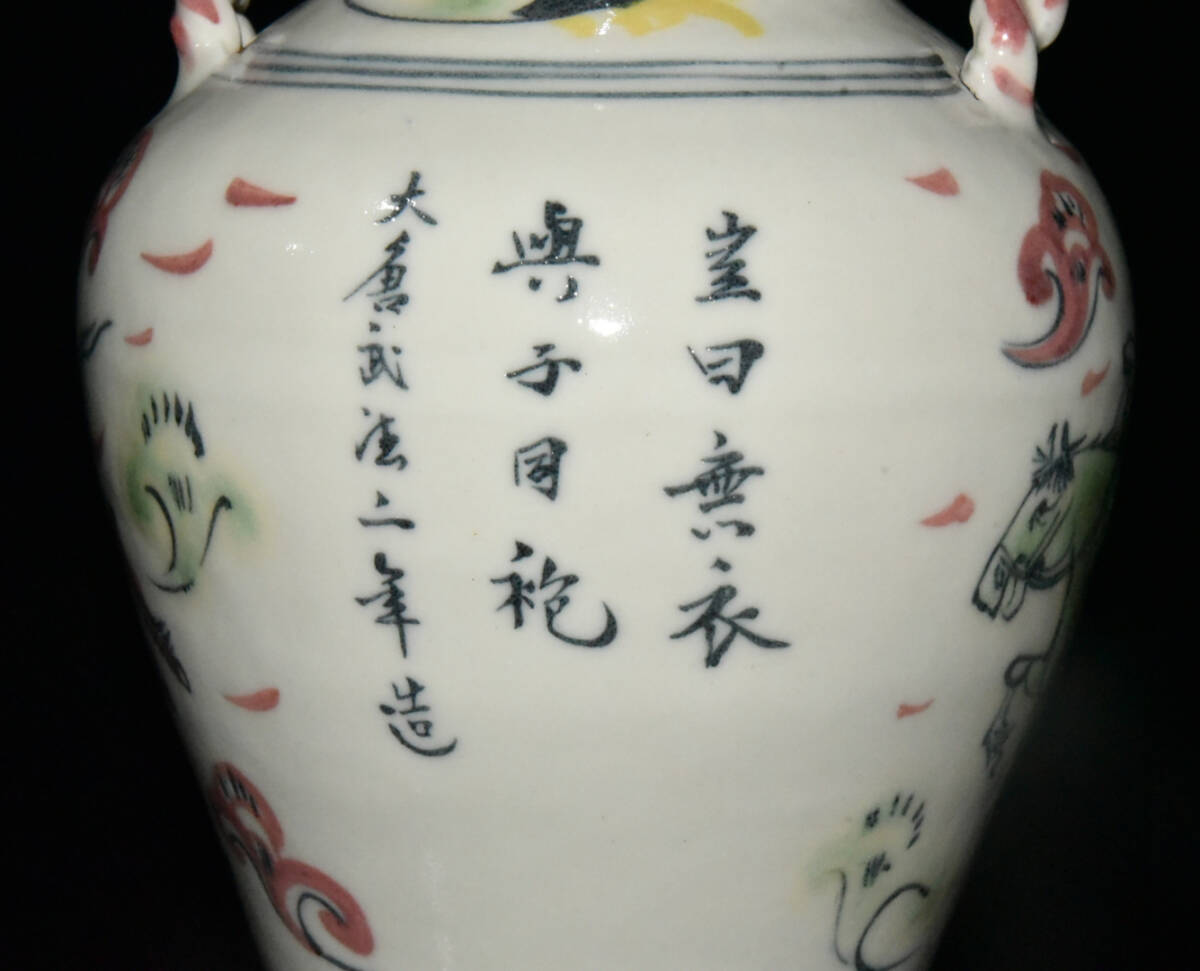 豈曰無衣
與子同袍
大唐武德二年造